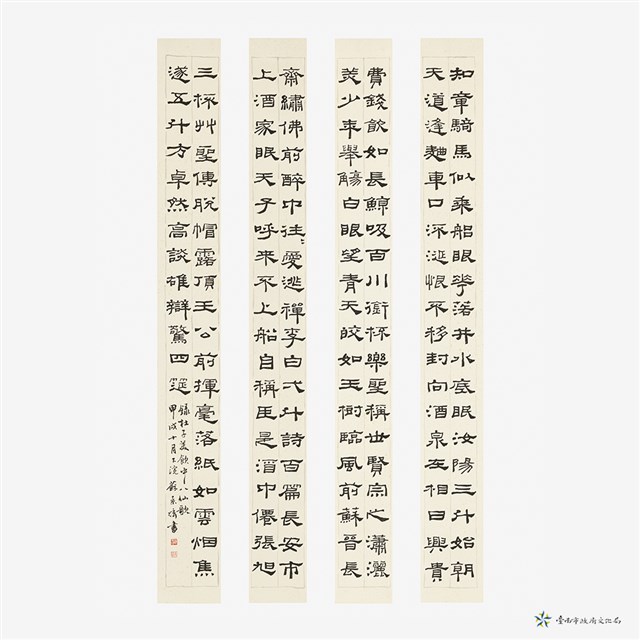 知章騎馬似乘船眼花落井水底眠汝陽三斗始朝
天道逢麴車口流涎恨不移封向酒泉左相日興費
錢飲如長鯨吸百川銜杯樂聖稱世賢宗之瀟灑
美少年舉觴白眼望青天皎如玉樹臨風前蘇晉長
齋繡佛前醉中往々愛逃禪李白一斗詩百篇長安市
上酒家眠天子呼來不上船自稱臣是酒中僊張旭
三杯艸聖傳脫帽露頂王公前揮毫落紙如雲烟焦
遂五斗方卓然高談雄辯驚四筵
錄杜子美飲中八仙歌
甲戌十月上浣 蘇 書
臺南市政府文化局